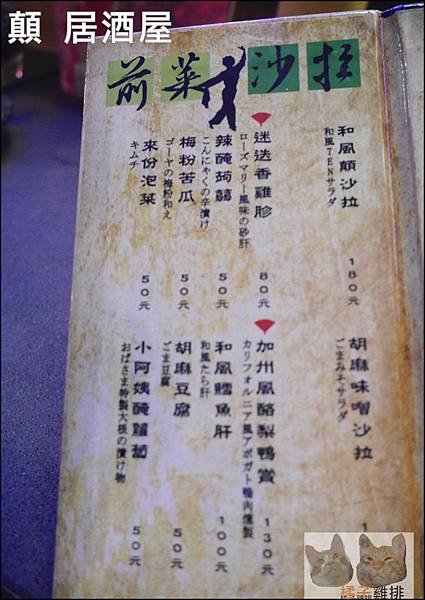 顛 居酒屋
前菜 沙拉
和風顛沙拉
和風TENサラダ
180元
胡麻味噌沙拉
ごまみそサラダ
迷迭香雞胗
ローズマリー風味の砂肝
80元
加州風酪梨鴨賞
カリフォルニア風アボガト鴨肉燻製
130元
辣醃蒟蒻
こんにゃくの辛漬け
50元
和風鱈魚肝
和風たら肝
100元
梅粉苦瓜
ゴーヤの梅粉和え
50元
胡麻豆腐
ごま豆腐
50元
來份泡菜
キムチ
50元
小阿姨醃蘿蔔
おばさま特製大根の漬け物
50元
橘子雞排